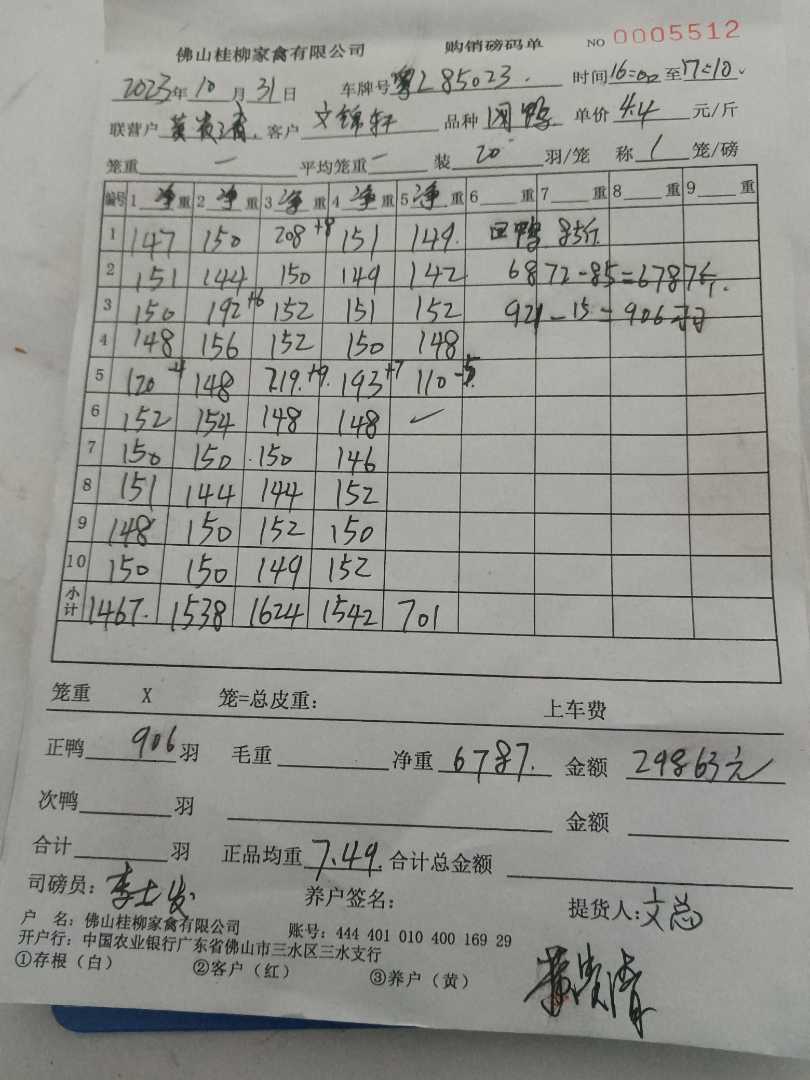 佛山桂柳家禽有限公司 购销磅码单 NO 0005512
2023年10月31日 车牌号粤L85023. 时间16=00至17=10
联营户黄贵清. 客户文锦轩 品种 单价4.4元/斤
笼重— 平均笼重— 装20羽/笼 称1笼/磅
编号 1净重 2净重 3净重 4净重 5净重 6重 7重 8重 9重
1 147 150 208+8 151 149. 回鸭 85斤.
2 151 144 150 149 142 6872-85=6787斤.
3 150 192+6 152 151 152 921-15=906羽
4 148 156 152 150 148
5 120-4 148 219.+9. 193+7 110-5
6 152 154 148 148 ✓
7 150 150 150 146
8 151 144 144 152
9 148 150 152 150
10 150 150 149 152
小计 1467. 1538 1624 1542 701
笼重 X 笼=总皮重: 上车费
正鸭906羽 毛重 净重6787. 金额29863元
次鸭 羽 金额
合计 羽 正品均重7.49. 合计总金额
司磅员:李士发 养户签名: 提货人:文总
户 名:佛山桂柳家禽有限公司 账号:444 401 010 400 169 29
开户行:中国农业银行广东省佛山市三水区三水支行
①存根(白) ②客户(红) ③养户(黄)
黄贵清